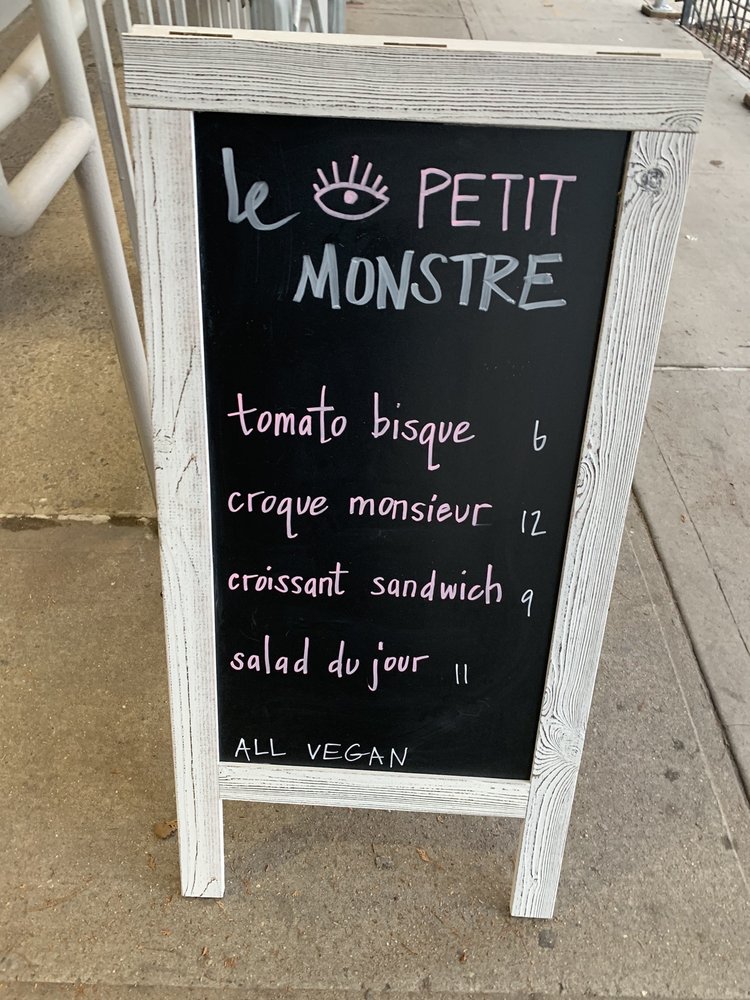 le PETIT
MONSTRE
tomato bisque 6
croque monsieur 12
croissant sandwich 9
salad du jour 11
ALL VEGAN